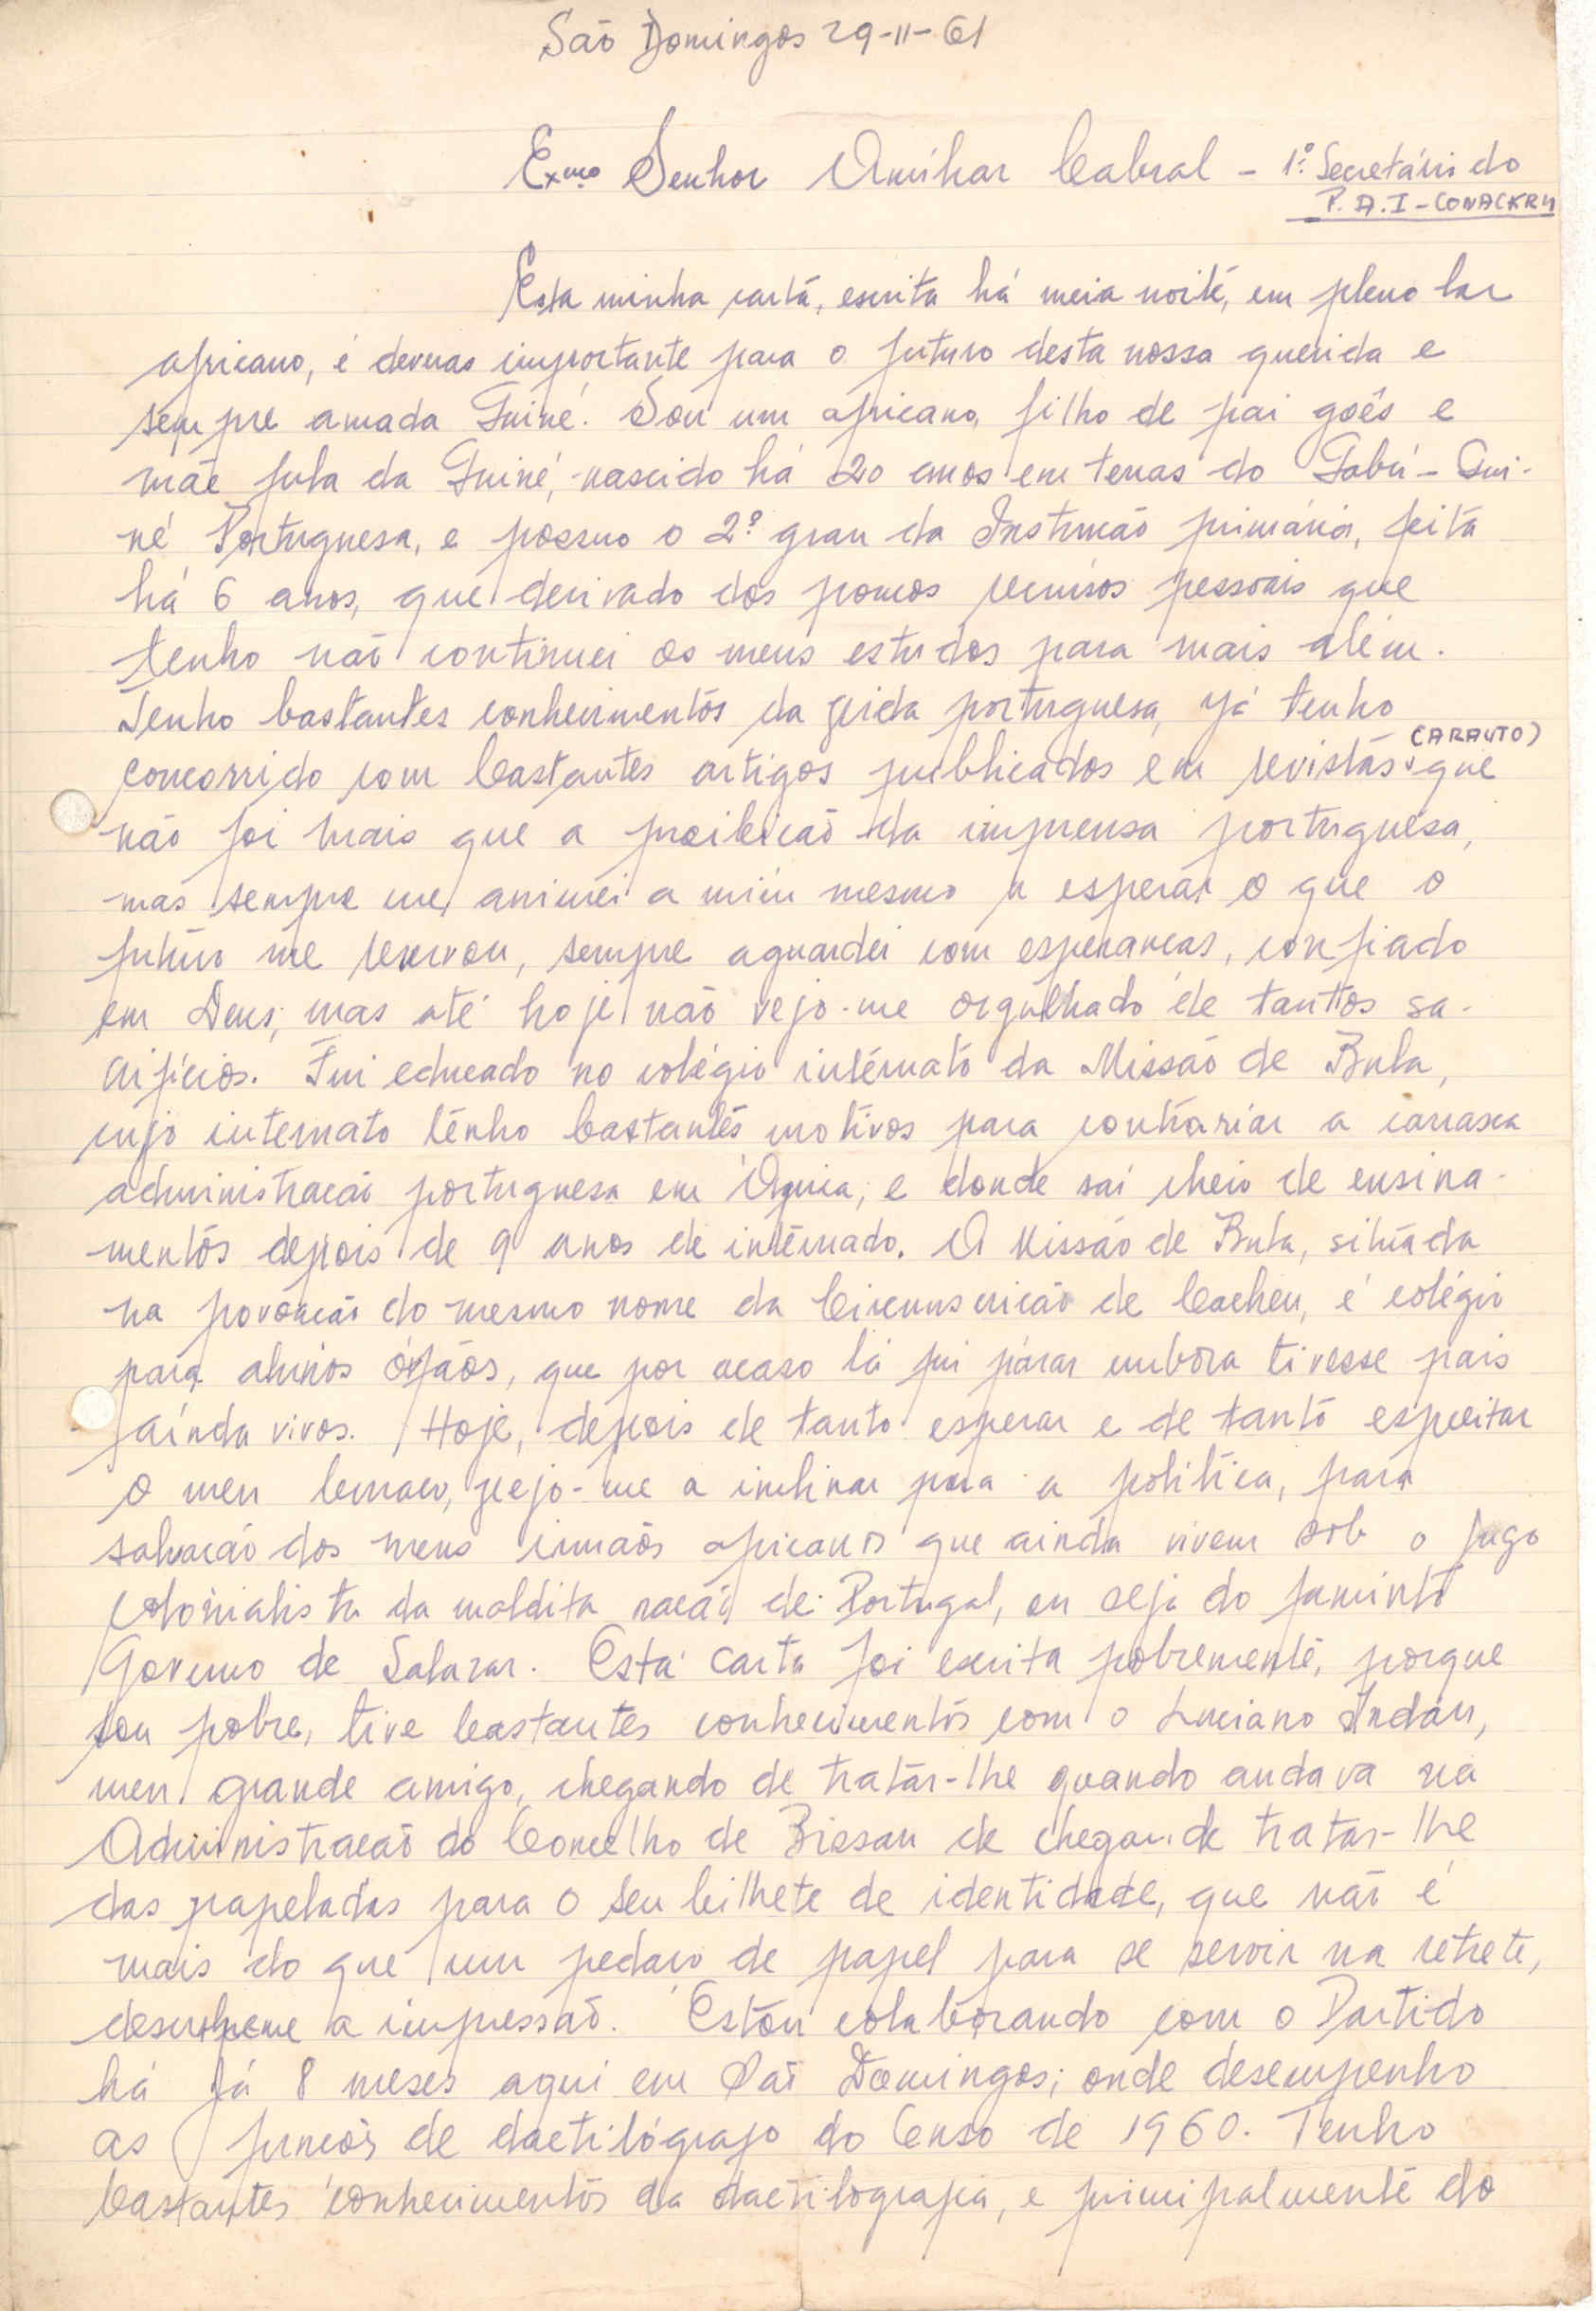 São Domingos 29-11-61
Exmo Senhor Amílcar Cabral - 1º Secretário do
P.A.I - CONACKRY
Esta minha carta, escrita há meia noite, em pleno lar
africano, é deveras importante para o futuro desta nossa querida e
sempre amada Guiné. Sou um africano, filho de pai goês e
mãe fula da Guiné, nascido há 20 anos em terras do Gabú - Gui-
né Portuguesa, e possuo o 2º grau da Instrução primária, feita
há 6 anos, que derivado dos poucos recursos pessoais que
tenho não continuei os meus estudos para mais além.
Tenho bastantes conhecimentos da vida portuguesa, já tenho
concorrido com bastantes artigos publicados em revistas (ARAUTO) que
não foi mais que a proibição da imprensa portuguesa,
mas sempre me animei a mim mesmo a esperar o que o
futuro me reservou, sempre aguardei com esperanças, confiado
em Deus, mas até hoje não vejo-me orgulhado de tantos sa-
crifícios. Fui educado no colégio internato da Missão de Bula,
cujo internato tenho bastantes motivos para contrariar a carrasca
administração portuguesa em África, e donde saí cheio de ensina-
mentos depois de 9 anos de internado. A Missão de Bula, situada
na povoação do mesmo nome da Circunscrição de Cacheu, é colégio
para alunos órfãos, que por acaso lá fui parar embora tivesse pais
ainda vivos. Hoje, depois de tanto esperar e de tanto espreitar
o meu vejo-me a inclinar para a política, para
salvação dos meus irmãos africanos que ainda vivem sob o jugo
colonialista da maldita nação de Portugal, ou seja do faminto
Governo de Salazar. Esta carta foi escrita pobremente, porque
sou pobre, tive bastantes conhecimentos com o Luciano Indáu,
meu grande amigo, chegando de tratar-lhe quando andava na
Administração do Concelho de Bissau de chegar de tratar-lhe
das papeladas para o seu bilhete de identidade, que não é
mais do que um pedaço de papel para se servir na retrete,
desculpeme a impressão. Estou colaborando com o Partido
há já 8 meses aqui em São Domingos; onde desempenho
as funções de dactilógrafo do Censo de 1960. Tenho
bastantes conhecimentos da dactilografia, e principalmente do